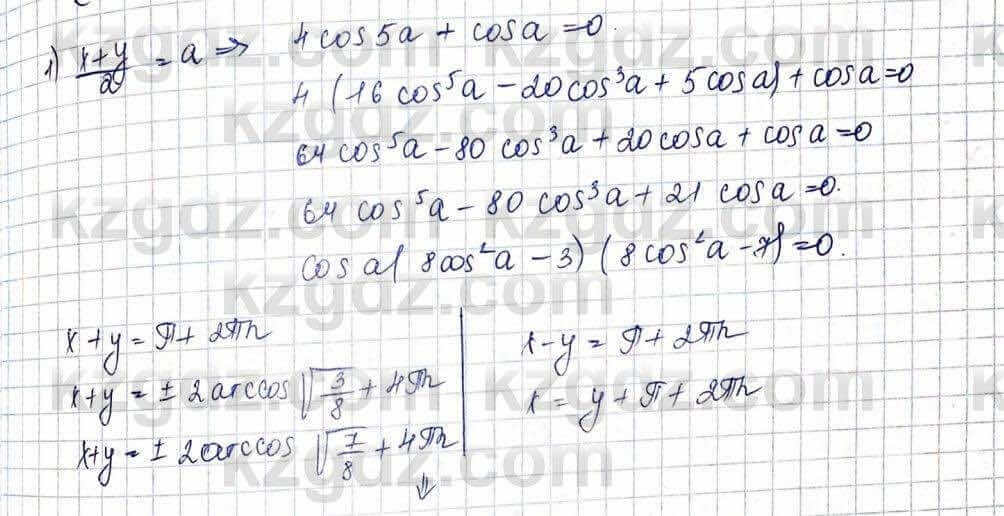 1) (x+y)/2 = a ⇒ 4cos5a + cosa = 0.
4(16cos⁵a − 20cos³a + 5cosa) + cosa = 0
64cos⁵a − 80cos³a + 20cosa + cosa = 0
64cos⁵a − 80cos³a + 21cosa = 0.
cosa(8cos²a − 3)(8cos²a − 7) = 0.
x + y = π + 2πn
x + y = ± 2arccos √(3/8) + 4πn
x + y = ± 2arccos √(7/8) + 4πn
⇓
x − y = π + 2πn
x = y + π + 2πn
kzgdz.com